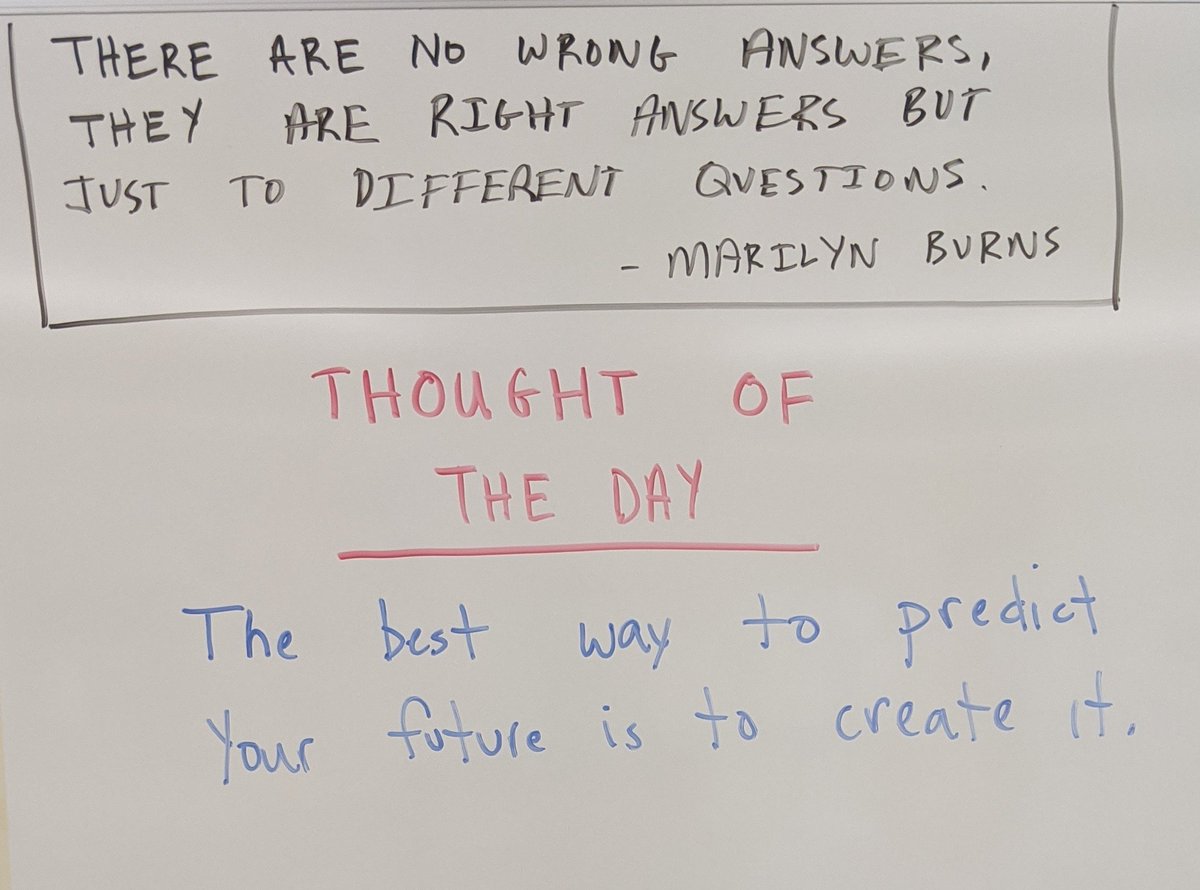 THERE ARE NO WRONG ANSWERS,
THEY ARE RIGHT ANSWERS BUT
JUST TO DIFFERENT QUESTIONS.
- MARILYN BURNS
THOUGHT OF
THE DAY
The best way to predict
Your future is to create it.